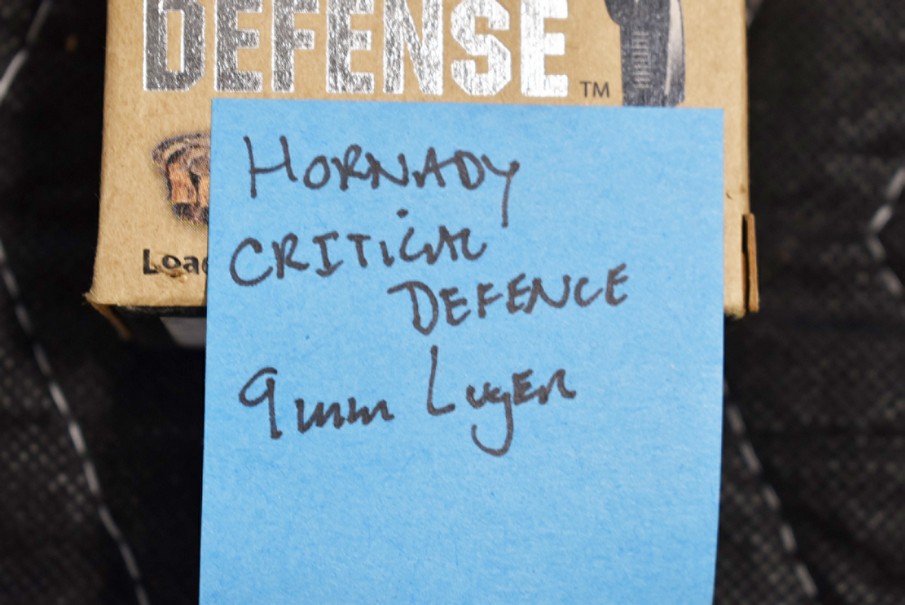 DEFENSE™
Loa
HORNADY
CRITICAL
DEFENCE
9mm Luger